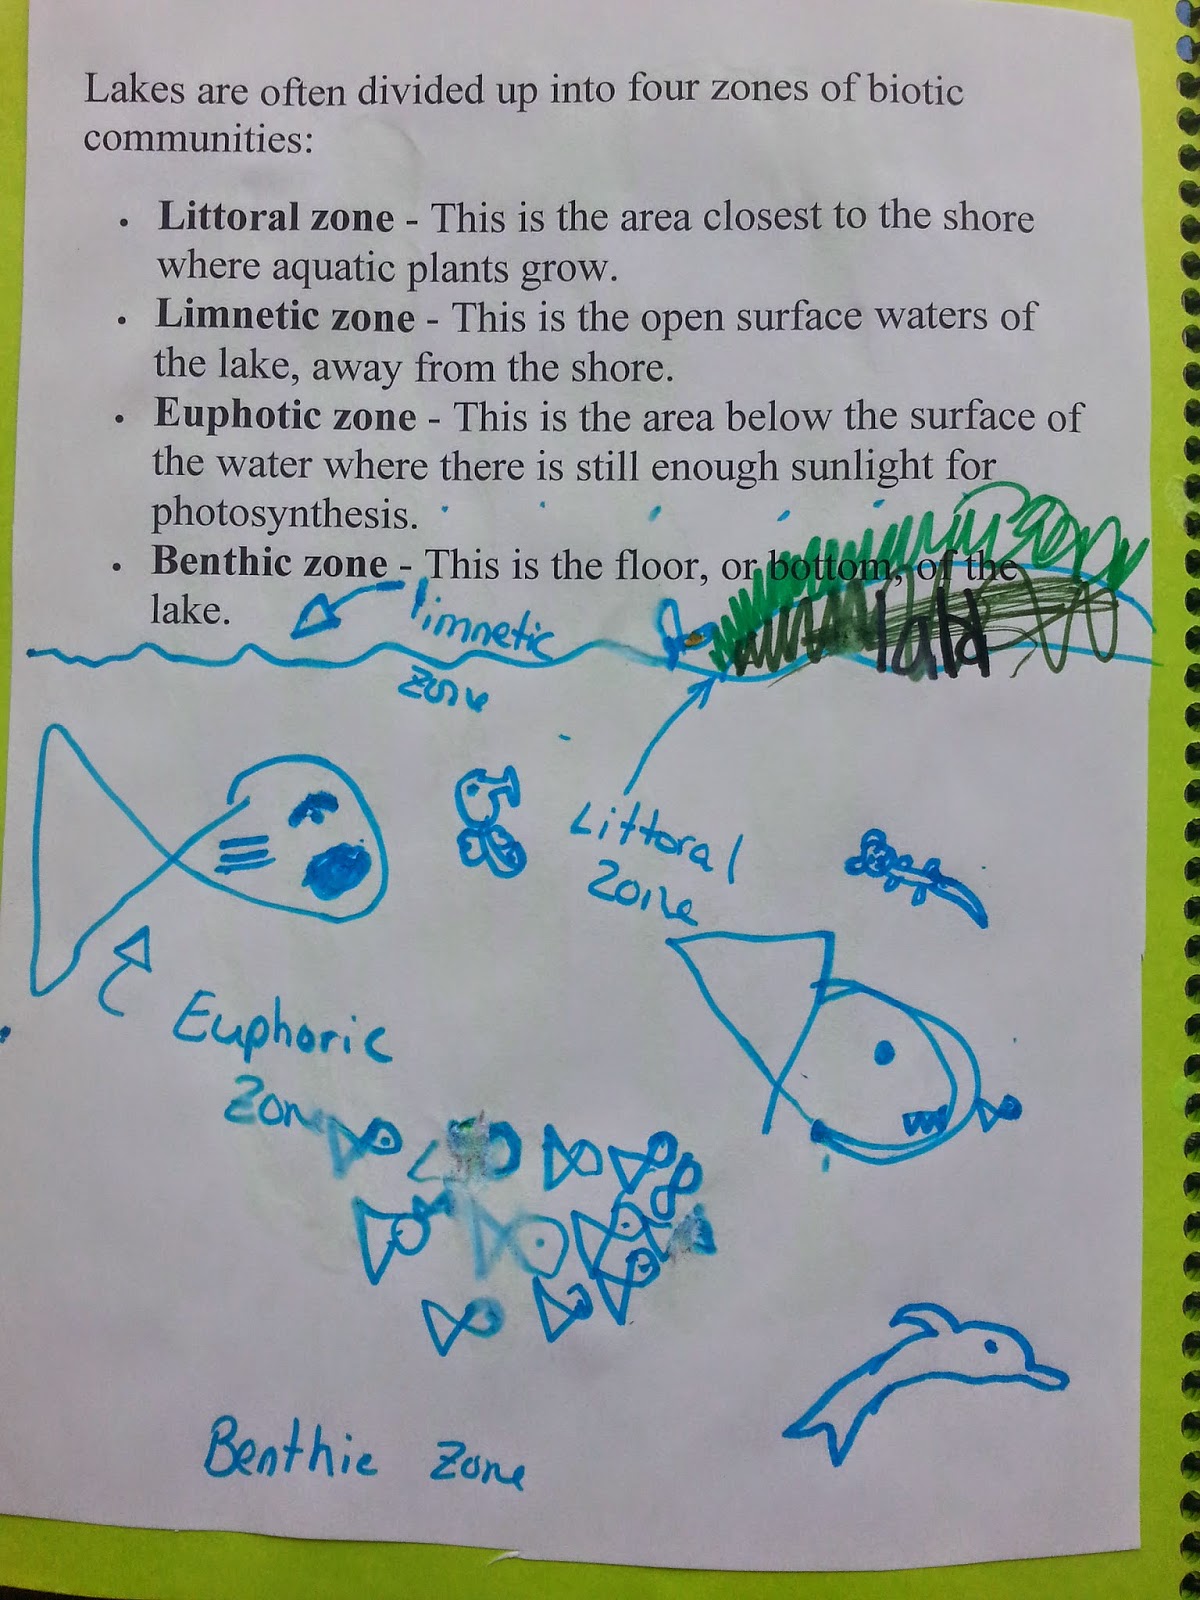 Lakes are often divided up into four zones of biotic
communities:
• Littoral zone - This is the area closest to the shore
where aquatic plants grow.
• Limnetic zone - This is the open surface waters of
the lake, away from the shore.
• Euphotic zone - This is the area below the surface of
the water where there is still enough sunlight for
photosynthesis.
• Benthic zone - This is the floor, or bottom, of the
lake.
limnetic
zone
Littoral
Zone
Euphoric
Zone
Benthic Zone